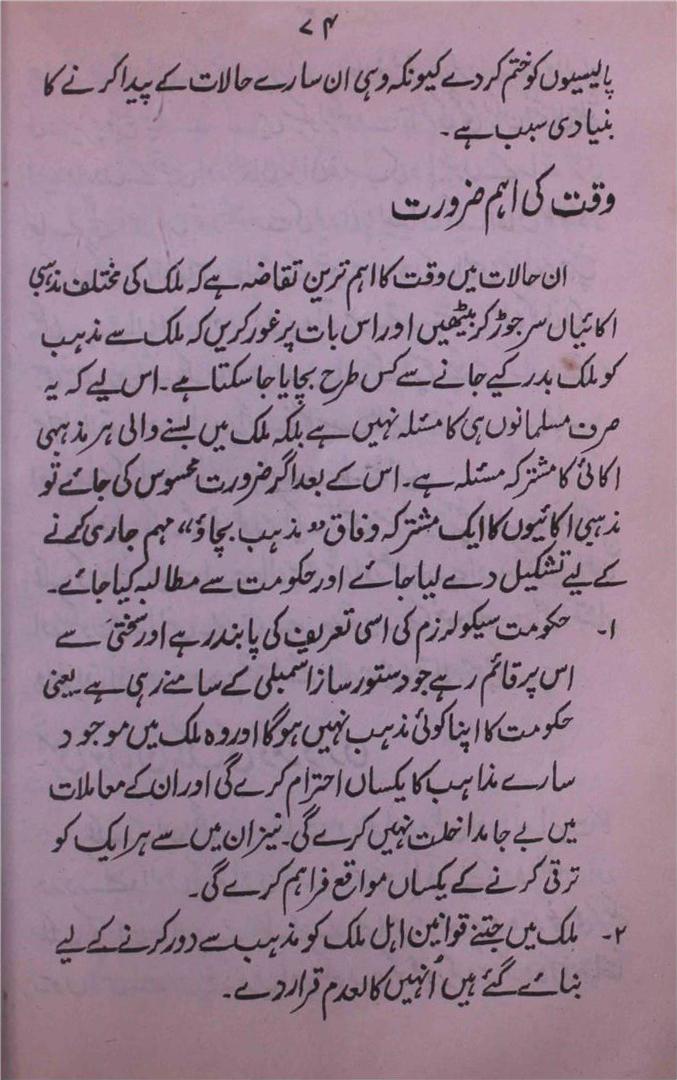 ۷۴
پالیسیوں کو ختم کر دے کیونکہ وہی ان سارے حالات کے پیدا کرنے کا
بنیادی سبب ہے۔
وقت کی اہم ضرورت
ان حالات میں وقت کا اہم ترین تقاضہ ہے کہ ملک کی مختلف مذہبی
اکائیاں سر جوڑ کر بیٹھیں اور اس بات پر غور کریں کہ ملک سے مذہب
کو ملک بدر کیے جانے سے کس طرح بچایا جا سکتا ہے۔ اس لیے کہ یہ
صرف مسلمانوں ہی کا مسئلہ نہیں ہے بلکہ ملک میں بسنے والی ہر مذہبی
اکائی کا مشترکہ مسئلہ ہے۔ اس کے بعد اگر ضرورت محسوس کی جائے تو
مذہبی اکائیوں کا ایک مشترکہ وفاق ”مذہب بچاؤ“ مہم جاری کرنے
کے لیے تشکیل دے لیا جائے اور حکومت سے مطالبہ کیا جائے۔
۱۔ حکومت سیکولرزم کی اسی تعریف کی پابند رہے اور سختی سے
اس پر قائم رہے جو دستور ساز اسمبلی کے سامنے رہی ہے۔ یعنی
حکومت کا اپنا کوئی مذہب نہیں ہوگا اور وہ ملک میں موجود
سارے مذاہب کا یکساں احترام کرے گی اور ان کے معاملات
میں بے جا مداخلت نہیں کرے گی۔ نیز ان میں سے ہر ایک کو
ترقی کرنے کے یکساں مواقع فراہم کرے گی۔
۲۔ ملک میں جتنے قوانین اہل ملک کو مذہب سے دور کرنے کے لیے
بنائے گئے ہیں اُنہیں کالعدم قرار دے۔